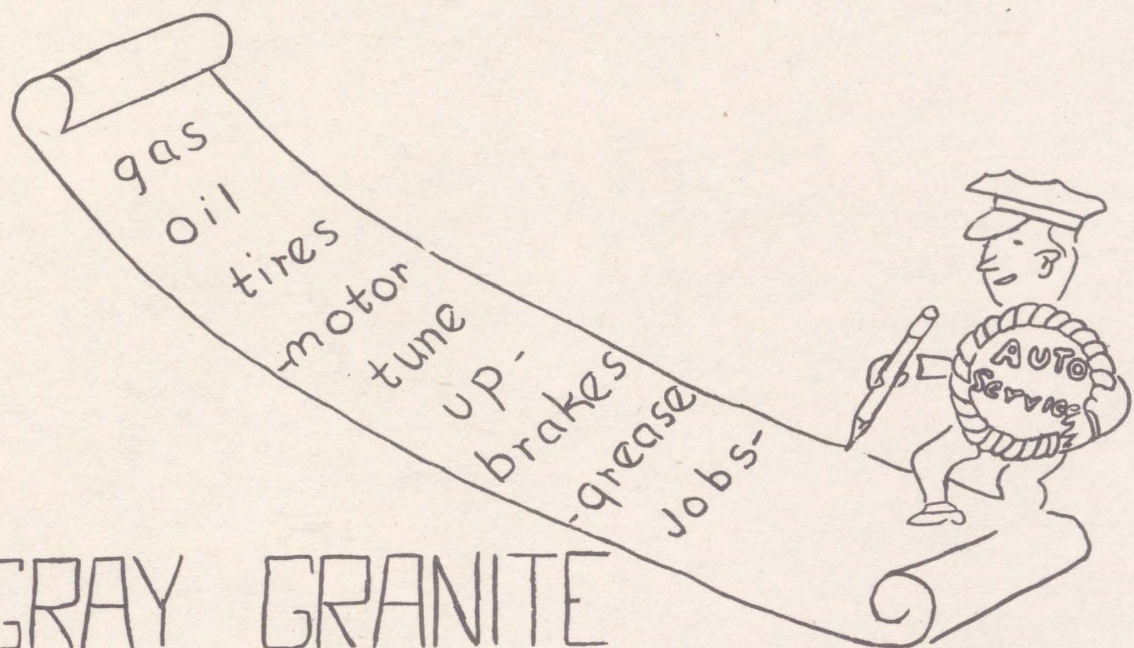 gas
oil
tires
-motor
tune
up-
brakes
-grease
Jobs-
AUTO
Service
GRAY GRANITE